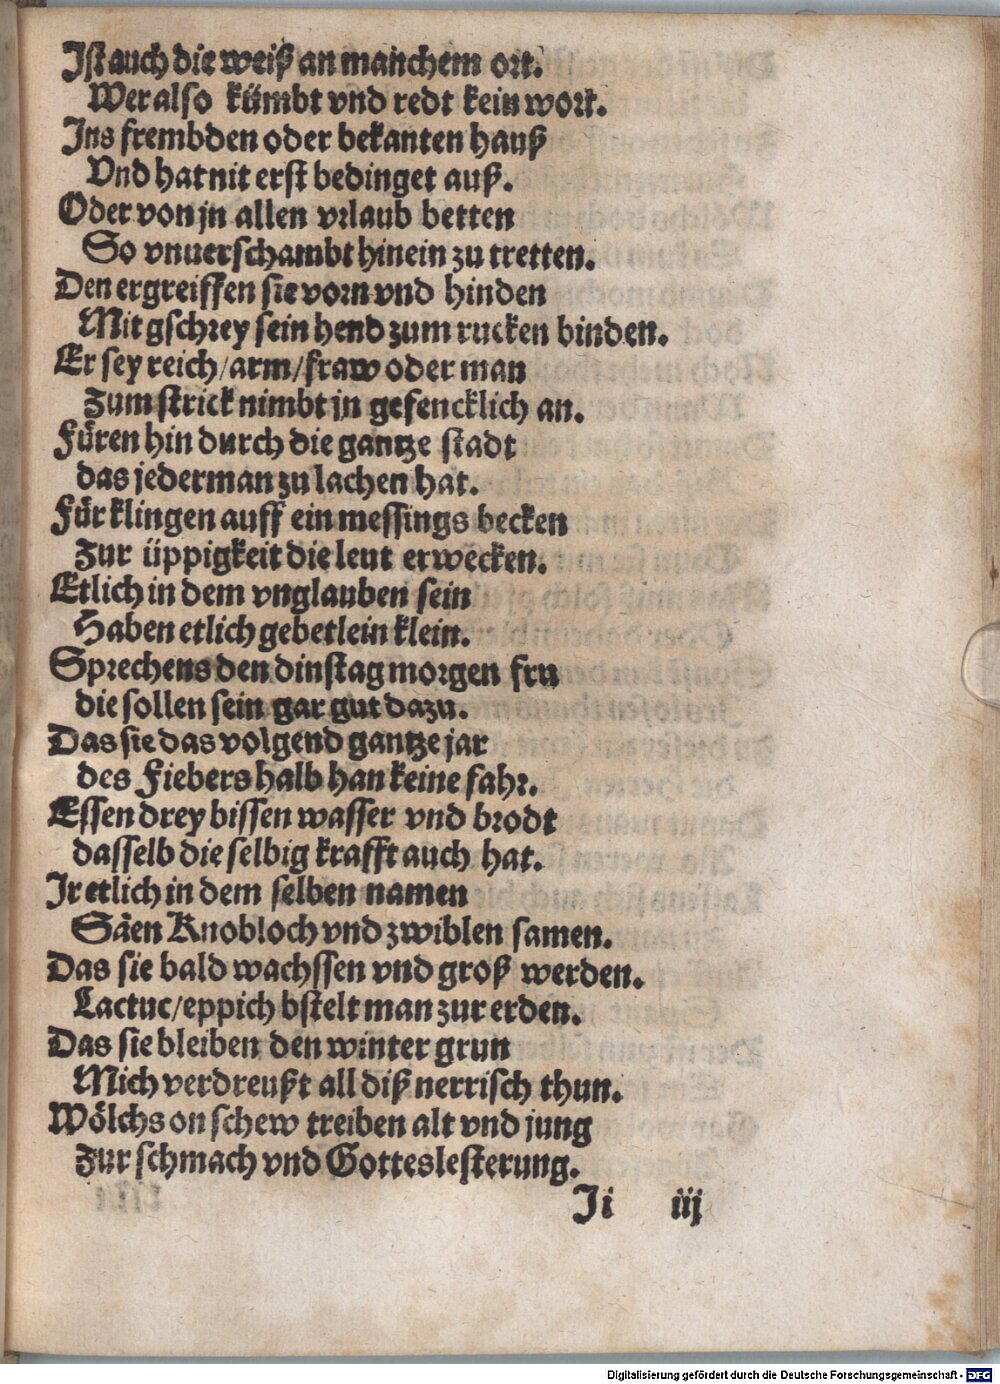 Ist auch die weiß an manchem ort.
Wer also kümbt vnd redt kein wort.
Ins frembden oder bekanten hauß
Vnd hat nit erst bedinget auß.
Oder von jn allen vrlaub betten
So vnuerschambt hinein zu tretten.
Den ergreiffen sie vorn vnd hinden
Mit gschrey sein hend zum rucken binden.
Er sey reich/arm/fraw oder man
Zum strick nimbt jn gefencklich an.
Füren hin durch die gantze stadt
das jederman zu lachen hat.
Für klingen auff ein messings becken
Zur üppigkeit die leut erwecken.
Etlich in dem vnglauben sein
Haben etlich gebetlein klein.
Sprechens den dinstag morgen fru
die sollen sein gar gut dazu.
Das sie das volgend gantze jar
des Fiebers halb han keine fahr.
Essen drey bissen wasser vnd brodt
dasselb die selbig krafft auch hat.
Ir etlich in dem selben namen
Säen Knobloch vnd zwiblen samen.
Das sie bald wachssen vnd groß werden.
Lactuc/eppich bstelt man zur erden.
Das sie bleiben den winter grun
Mich verdreußt all diß nerrisch thun.
Wölchs on schew treiben alt vnd jung
Zur schmach vnd Gotteslesterung.
Ii iij
Digitalisierung gefördert durch die Deutsche Forschungsgemeinschaft - DFG